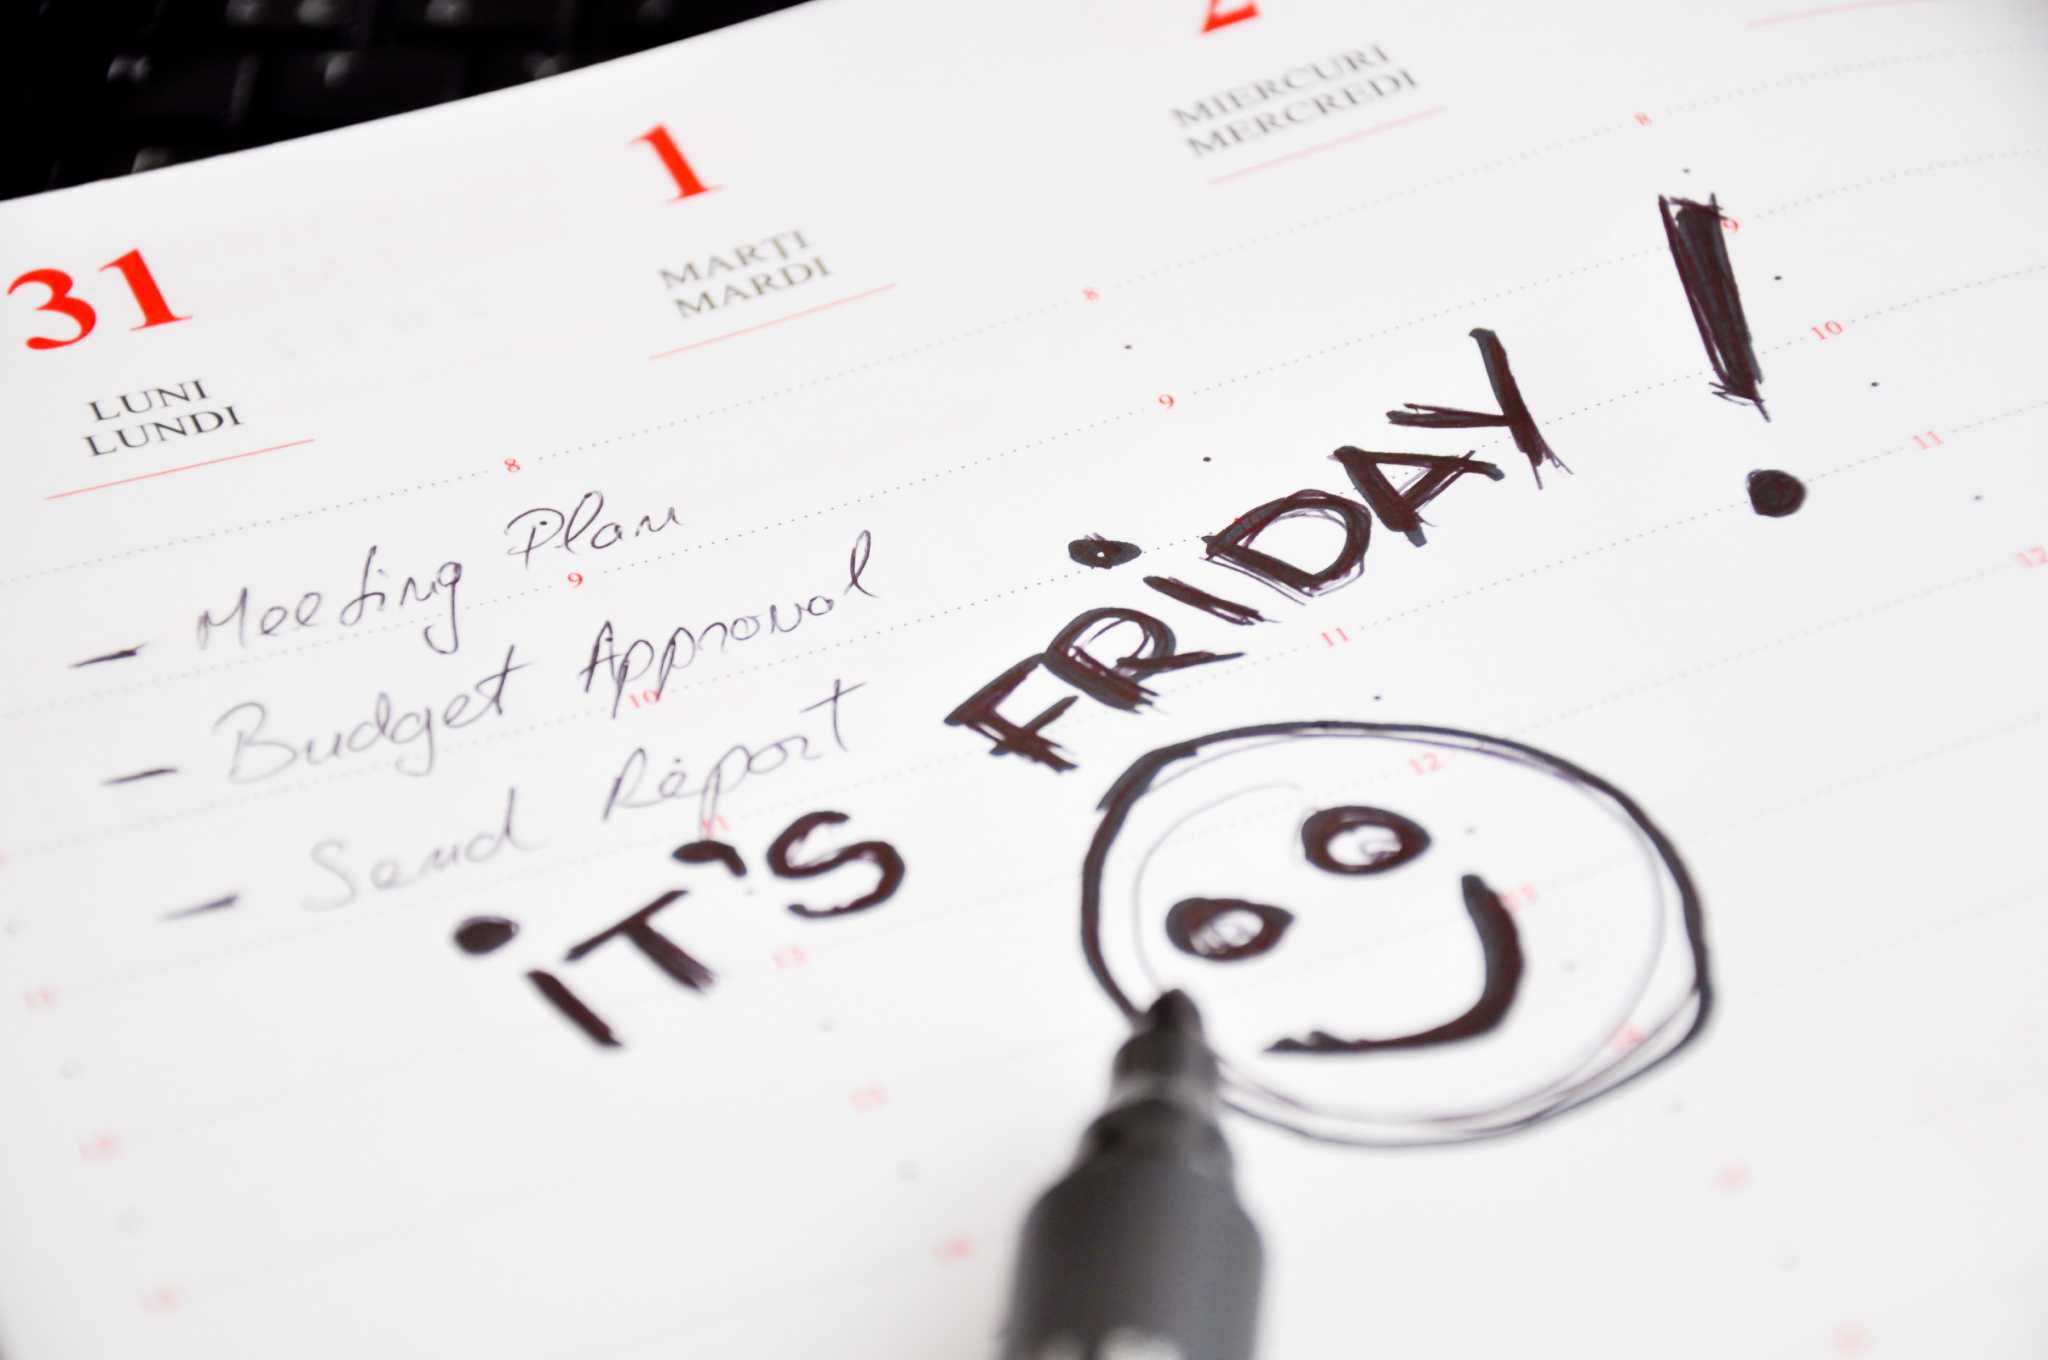 31
LUNI
LUNDI
1
MARȚI
MARDI
2
MIERCURI
MERCREDI
8
9
10
11
12
8
9
11
12
13
8
9
10
11
13
- Meeting Plan
- Budget Approval
- Send Report
IT'S FRIDAY!